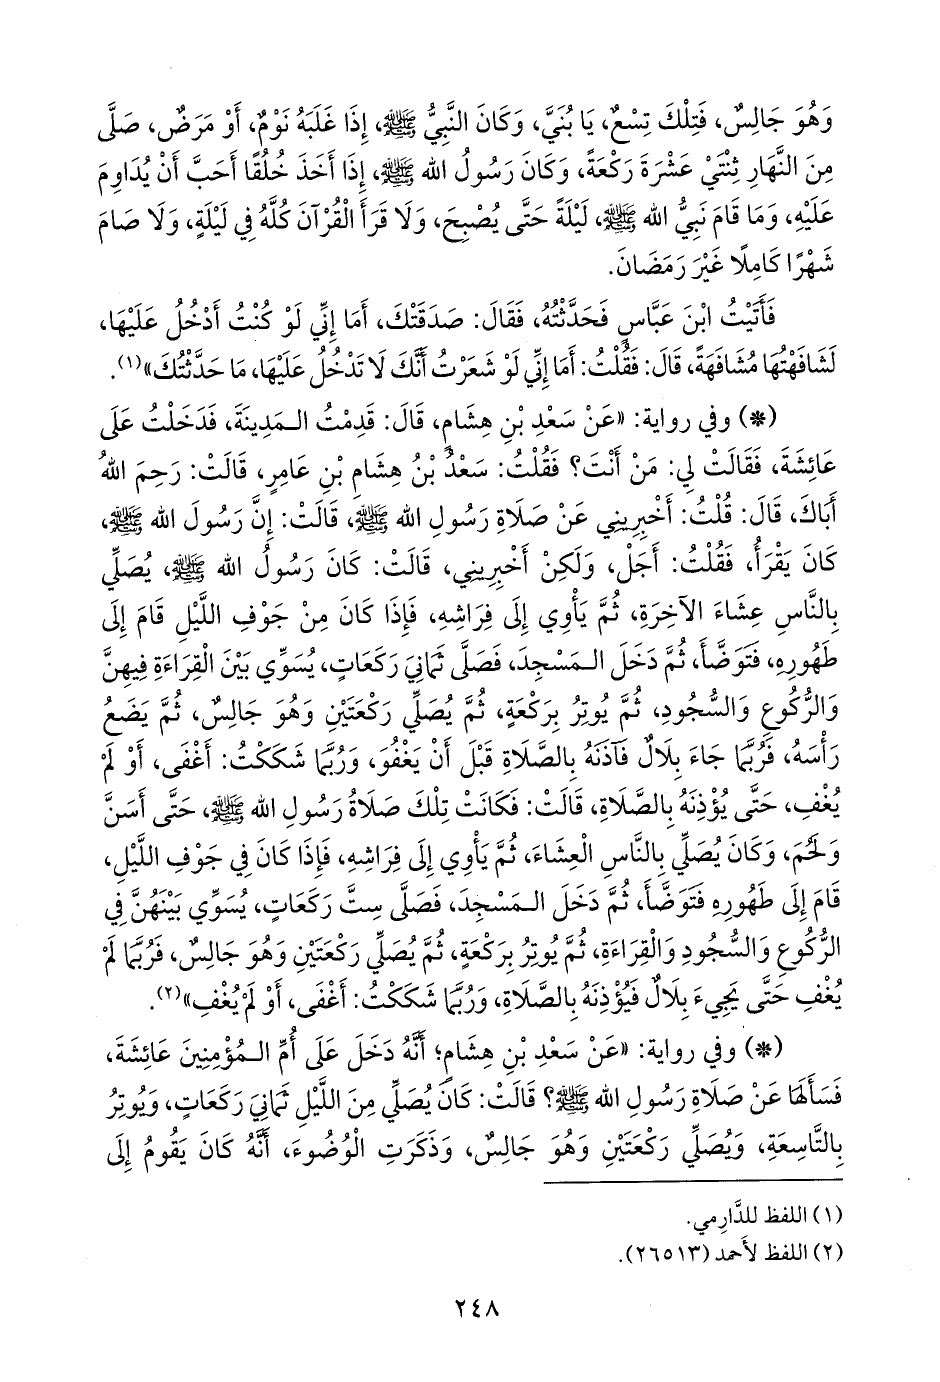 وَهُوَ جَالِسٌ، فَتِلْكَ تِسْعٌ، يَا بُنَيَّ، وَكَانَ النَّبِيُّ ﷺ، إِذَا غَلَبَهُ نَوْمٌ، أَوْ مَرَضٌ، صَلَّى
مِنَ النَّهَارِ ثِنْتَيْ عَشْرَةَ رَكْعَةً، وَكَانَ رَسُولُ الله ﷺ، إِذَا أَخَذَ خُلُقًا أَحَبَّ أَنْ يُدَاوِمَ
عَلَيْهِ، وَمَا قَامَ نَبِيُّ الله ﷺ، لَيْلَةً حَتَّى يُصْبِحَ، وَلَا قَرَأَ الْقُرْآنَ كُلَّهُ فِي لَيْلَةٍ، وَلَا صَامَ
شَهْرًا كَامِلًا غَيْرَ رَمَضَانَ.
فَأَتَيْتُ ابْنَ عَبَّاسٍ فَحَدَّثْتُهُ، فَقَالَ: صَدَقَتْكَ، أَمَا إِنِّي لَوْ كُنْتُ أَدْخُلُ عَلَيْهَا،
لَشَافَهْتُهَا مُشَافَهَةً، قَالَ: فَقُلْتُ: أَمَا إِنِّي لَوْ شَعَرْتُ أَنَّكَ لَا تَدْخُلُ عَلَيْهَا، مَا حَدَّثْتُكَ»(١).
(*) وفي رواية: «عَنْ سَعْدِ بْنِ هِشَامٍ، قَالَ: قَدِمْتُ الـمَدِينَةَ، فَدَخَلْتُ عَلَى
عَائِشَةَ، فَقَالَتْ لِي: مَنْ أَنْتَ؟ فَقُلْتُ: سَعْدُ بْنُ هِشَامِ بْنِ عَامِرٍ، قَالَتْ: رَحِمَ اللهُ
أَبَاكَ، قَالَ: قُلْتُ: أَخْبِرِينِي عَنْ صَلَاةِ رَسُولِ الله ﷺ، قَالَتْ: إِنَّ رَسُولَ الله ﷺ،
كَانَ يَقْرَأُ، فَقُلْتُ: أَجَلْ، وَلَكِنْ أَخْبِرِينِي، قَالَتْ: كَانَ رَسُولُ الله ﷺ، يُصَلِّي
بِالنَّاسِ عِشَاءَ الآخِرَةِ، ثُمَّ يَأْوِي إِلَى فِرَاشِهِ، فَإِذَا كَانَ مِنْ جَوْفِ اللَّيْلِ قَامَ إِلَى
طَهُورِهِ، فَتَوَضَّأَ، ثُمَّ دَخَلَ الـمَسْجِدَ، فَصَلَّى ثَمَانِيَ رَكَعَاتٍ، يُسَوِّي بَيْنَ الْقِرَاءَةِ فِيهِنَّ
وَالرُّكُوعِ وَالسُّجُودِ، ثُمَّ يُوتِرُ بِرَكْعَةٍ، ثُمَّ يُصَلِّي رَكْعَتَيْنِ وَهُوَ جَالِسٌ، ثُمَّ يَضَعُ
رَأْسَهُ، فَرُبَّمَا جَاءَ بِلَالٌ فَآذَنَهُ بِالصَّلَاةِ قَبْلَ أَنْ يَغْفُوَ، وَرُبَّمَا شَكَكْتُ: أَغْفَى، أَوْ لَمْ
يُغْفِ، حَتَّى يُؤْذِنَهُ بِالصَّلَاةِ، قَالَتْ: فَكَانَتْ تِلْكَ صَلَاةُ رَسُولِ الله ﷺ، حَتَّى أَسَنَّ
وَلَحُمَ، وَكَانَ يُصَلِّي بِالنَّاسِ الْعِشَاءَ، ثُمَّ يَأْوِي إِلَى فِرَاشِهِ، فَإِذَا كَانَ فِي جَوْفِ اللَّيْلِ،
قَامَ إِلَى طَهُورِهِ فَتَوَضَّأَ، ثُمَّ دَخَلَ الـمَسْجِدَ، فَصَلَّى سِتَّ رَكَعَاتٍ، يُسَوِّي بَيْنَهُنَّ فِي
الرُّكُوعِ وَالسُّجُودِ وَالْقِرَاءَةِ، ثُمَّ يُوتِرُ بِرَكْعَةٍ، ثُمَّ يُصَلِّي رَكْعَتَيْنِ وَهُوَ جَالِسٌ، فَرُبَّمَا لَمْ
يُغْفِ حَتَّى يَجِيءَ بِلَالٌ فَيُؤْذِنَهُ بِالصَّلَاةِ، وَرُبَّمَا شَكَكْتُ: أَغْفَى، أَوْ لَمْ يُغْفِ»(٢).
(*) وفي رواية: «عَنْ سَعْدِ بْنِ هِشَامٍ؛ أَنَّهُ دَخَلَ عَلَى أُمِّ الـمُؤْمِنِينَ عَائِشَةَ،
فَسَأَلَهَا عَنْ صَلَاةِ رَسُولِ الله ﷺ؟ قَالَتْ: كَانَ يُصَلِّي مِنَ اللَّيْلِ ثَمَانِيَ رَكَعَاتٍ، وَيُوتِرُ
بِالتَّاسِعَةِ، وَيُصَلِّي رَكْعَتَيْنِ وَهُوَ جَالِسٌ، وَذَكَرَتِ الْوُضُوءَ، أَنَّهُ كَانَ يَقُومُ إِلَى
(١) اللفظ للدَّارِمي.
(٢) اللفظ لأحمد (٢٦٥١٣).
٢٤٨